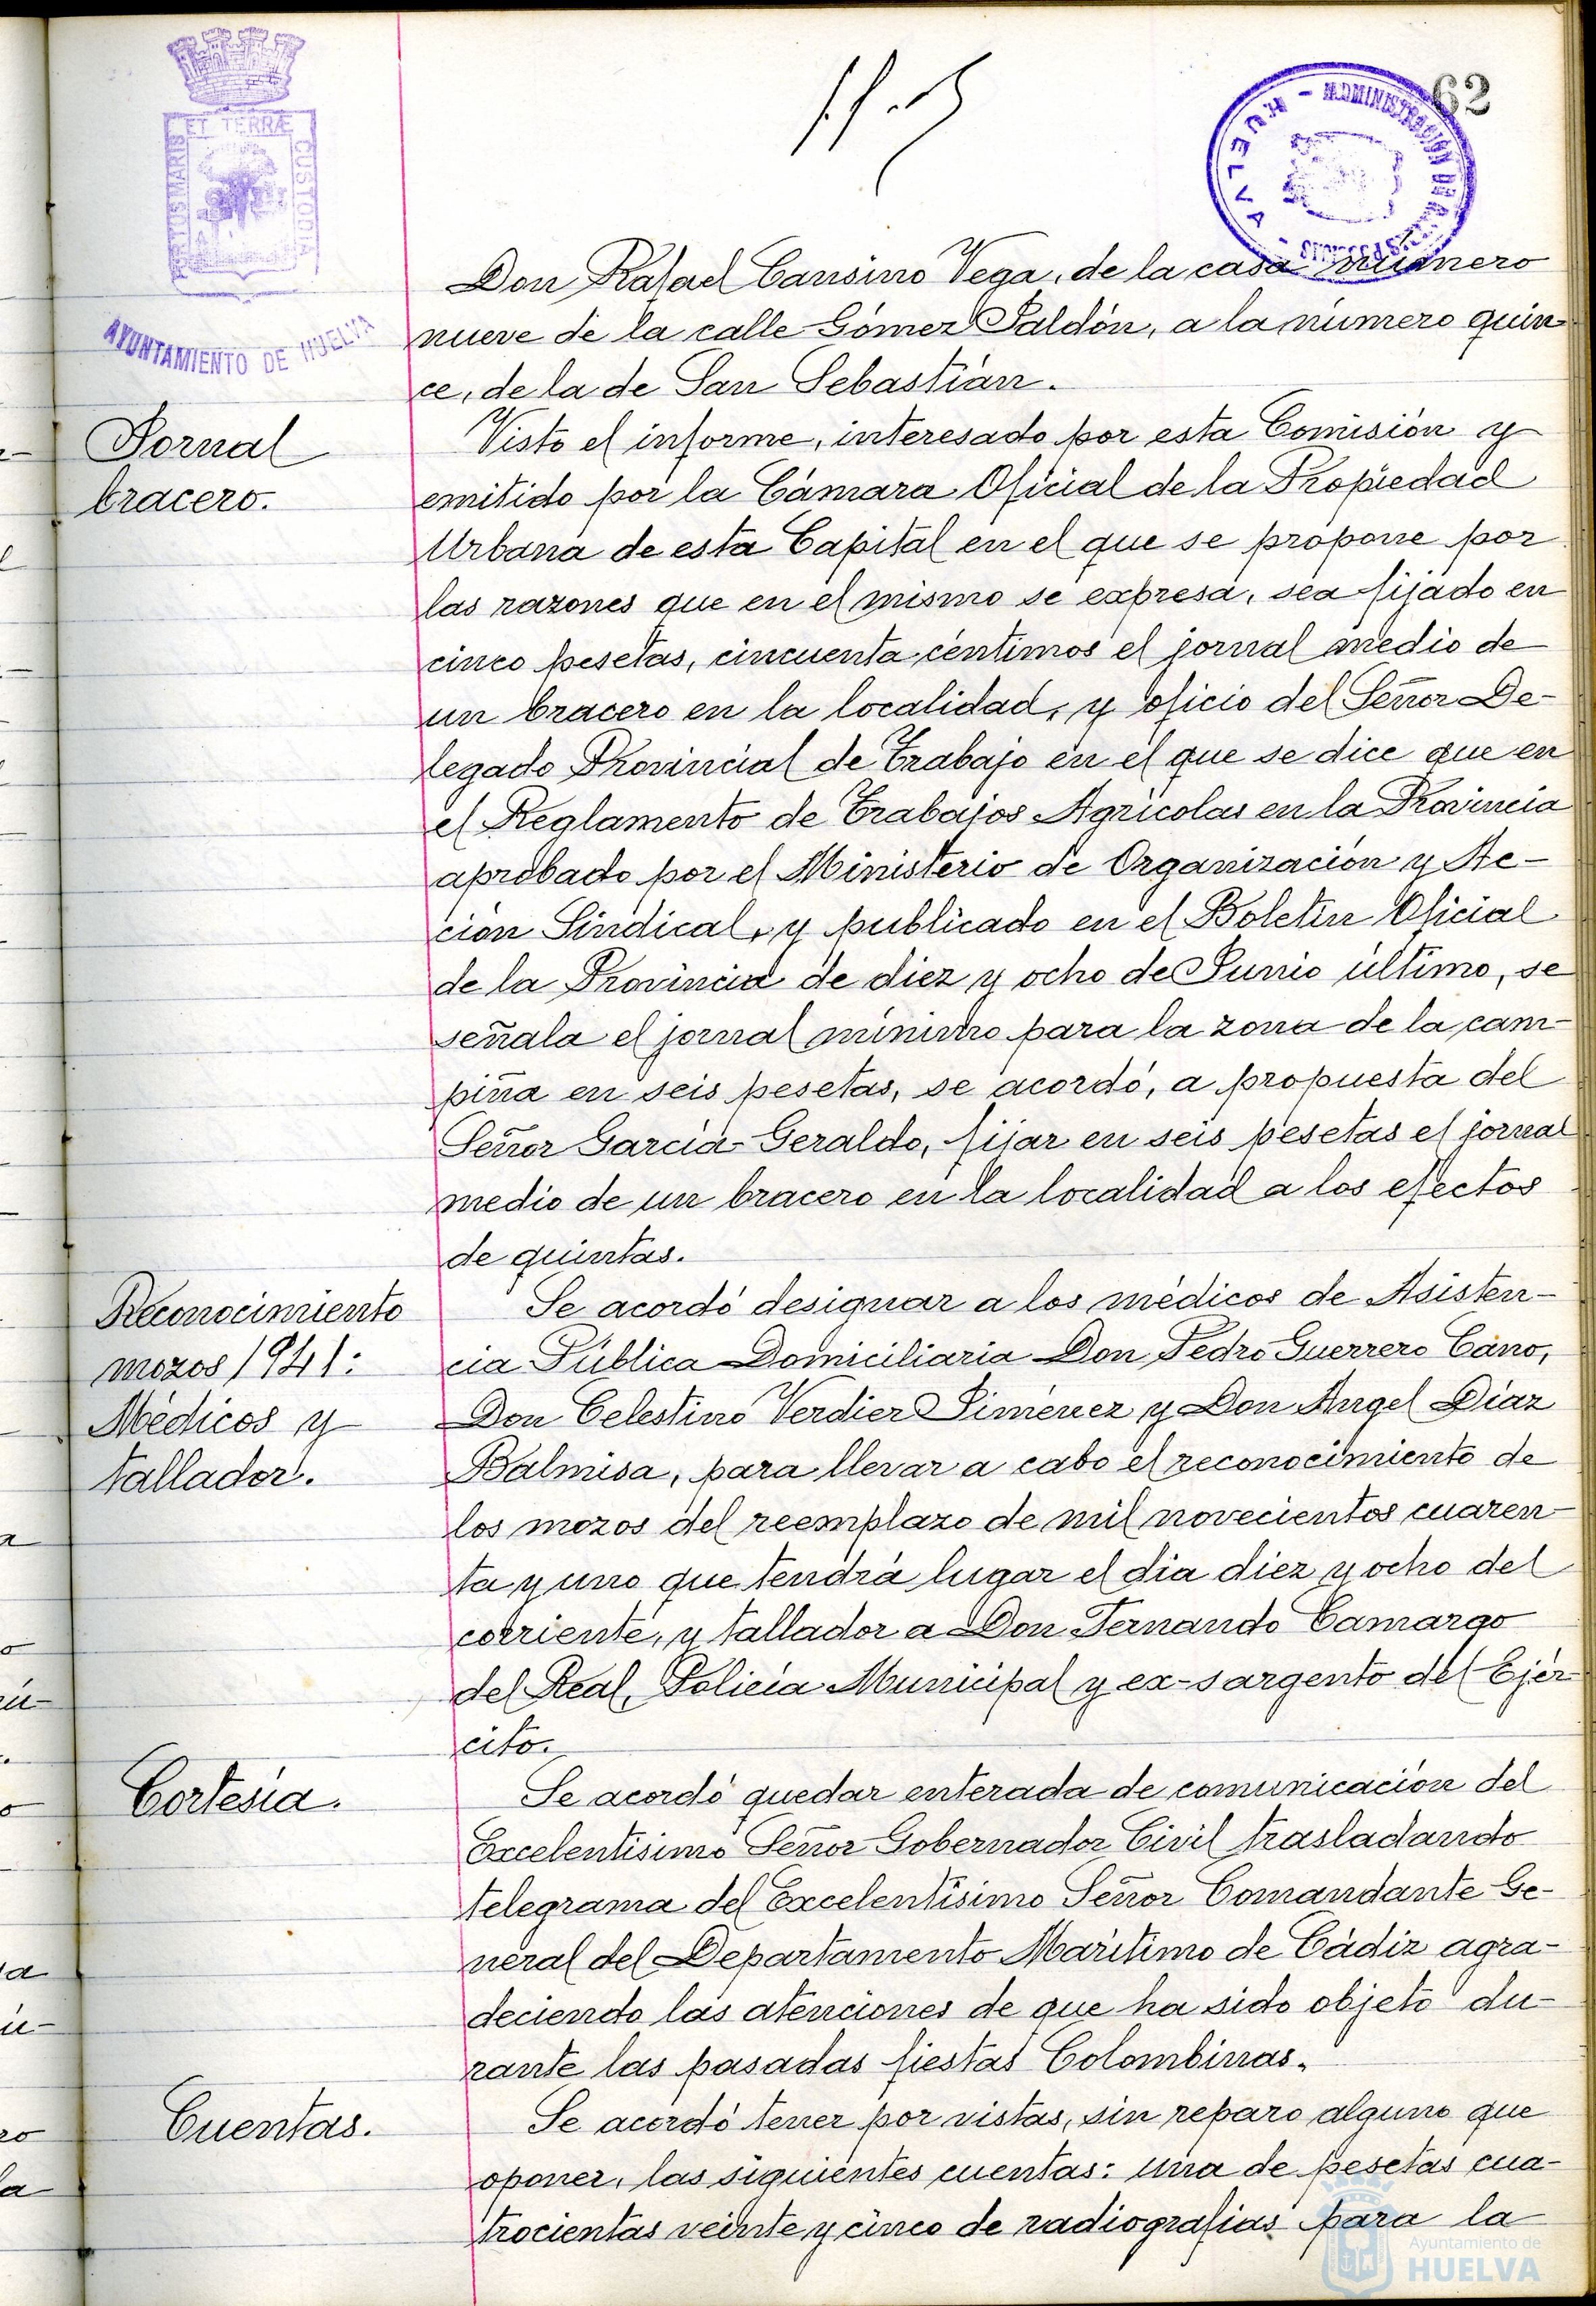 62
PORTUS MARIS ET TERRÆ CUSTODIA
AYUNTAMIENTO DE HUELVA
HUELVA
Don Rafael Cansino Vega, de la casa número
nueve de la calle Gómez Jaldón, a la número quin-
ce, de la de San Sebastián.
Jornal
bracero.
Visto el informe, interesado por esta Comisión y
emitido por la Cámara Oficial de la Propiedad
Urbana de esta Capital en el que se propone por
las razones que en el mismo se expresa, sea fijado en
cinco pesetas, cincuenta céntimos el jornal medio de
un bracero en la localidad, y oficio del Señor De-
legado Provincial de Trabajo en el que se dice que en
el Reglamento de Trabajos Agrícolas en la Provincia
aprobado por el Ministerio de Organización y Ac-
ción Sindical, y publicado en el Boletín Oficial
de la Provincia de diez y ocho de Junio último, se
señala el jornal mínimo para la zona de la cam-
piña en seis pesetas, se acordó, a propuesta del
Señor García-Geraldo, fijar en seis pesetas el jornal
medio de un bracero en la localidad a los efectos
de quintas.
Reconocimiento
mozos 1941:
Médicos y
tallador.
Se acordó designar a los médicos de Asisten-
cia Pública Domiciliaria Don Pedro Guerrero Cano,
Don Celestino Verdier Jiménez y Don Angel Díaz
Balmisa, para llevar a cabo el reconocimiento de
los mozos del reemplazo de mil novecientos cuaren-
ta y uno que tendrá lugar el dia diez y ocho del
corriente, y tallador a Don Fernando Camargo
del Real, Policía Municipal y ex-sargento del Ejér-
cito.
Cortesía.
Se acordó quedar enterada de comunicación del
Excelentísimo Señor Gobernador Civil trasladando
telegrama del Excelentísimo Señor Comandante Ge-
neral del Departamento Marítimo de Cádiz agra-
deciendo las atenciones de que ha sido objeto du-
rante las pasadas fiestas Colombinas.
Cuentas.
Se acordó tener por vistas, sin reparo alguno que
oponer, las siguientes cuentas: una de pesetas cua-
trocientas veinte y cinco de radiografías para la
Ayuntamiento de
HUELVA